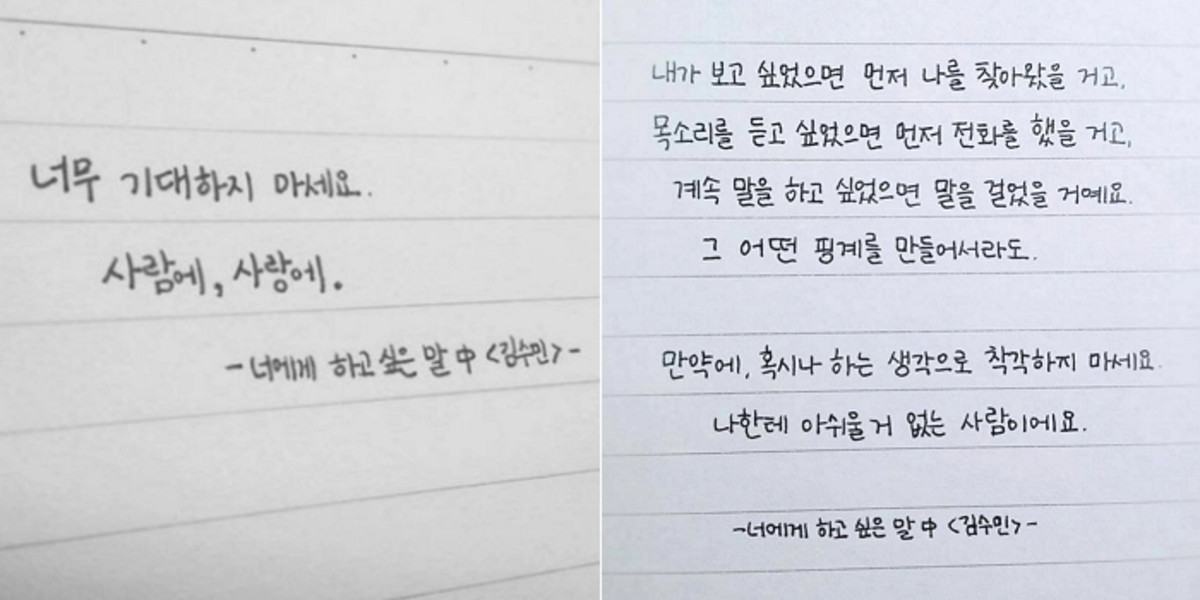 너무 기대하지 마세요.
사람에, 사랑에.
-너에게 하고 싶은 말 中 <김수민>-
내가 보고 싶었으면 먼저 나를 찾아왔을 거고,
목소리를 듣고 싶었으면 먼저 전화를 했을 거고,
계속 말을 하고 싶었으면 말을 걸었을 거예요.
그 어떤 핑계를 만들어서라도.
만약에, 혹시나 하는 생각으로 착각하지 마세요.
나한테 아쉬울 거 없는 사람이에요.
-너에게 하고 싶은 말 中 <김수민>-